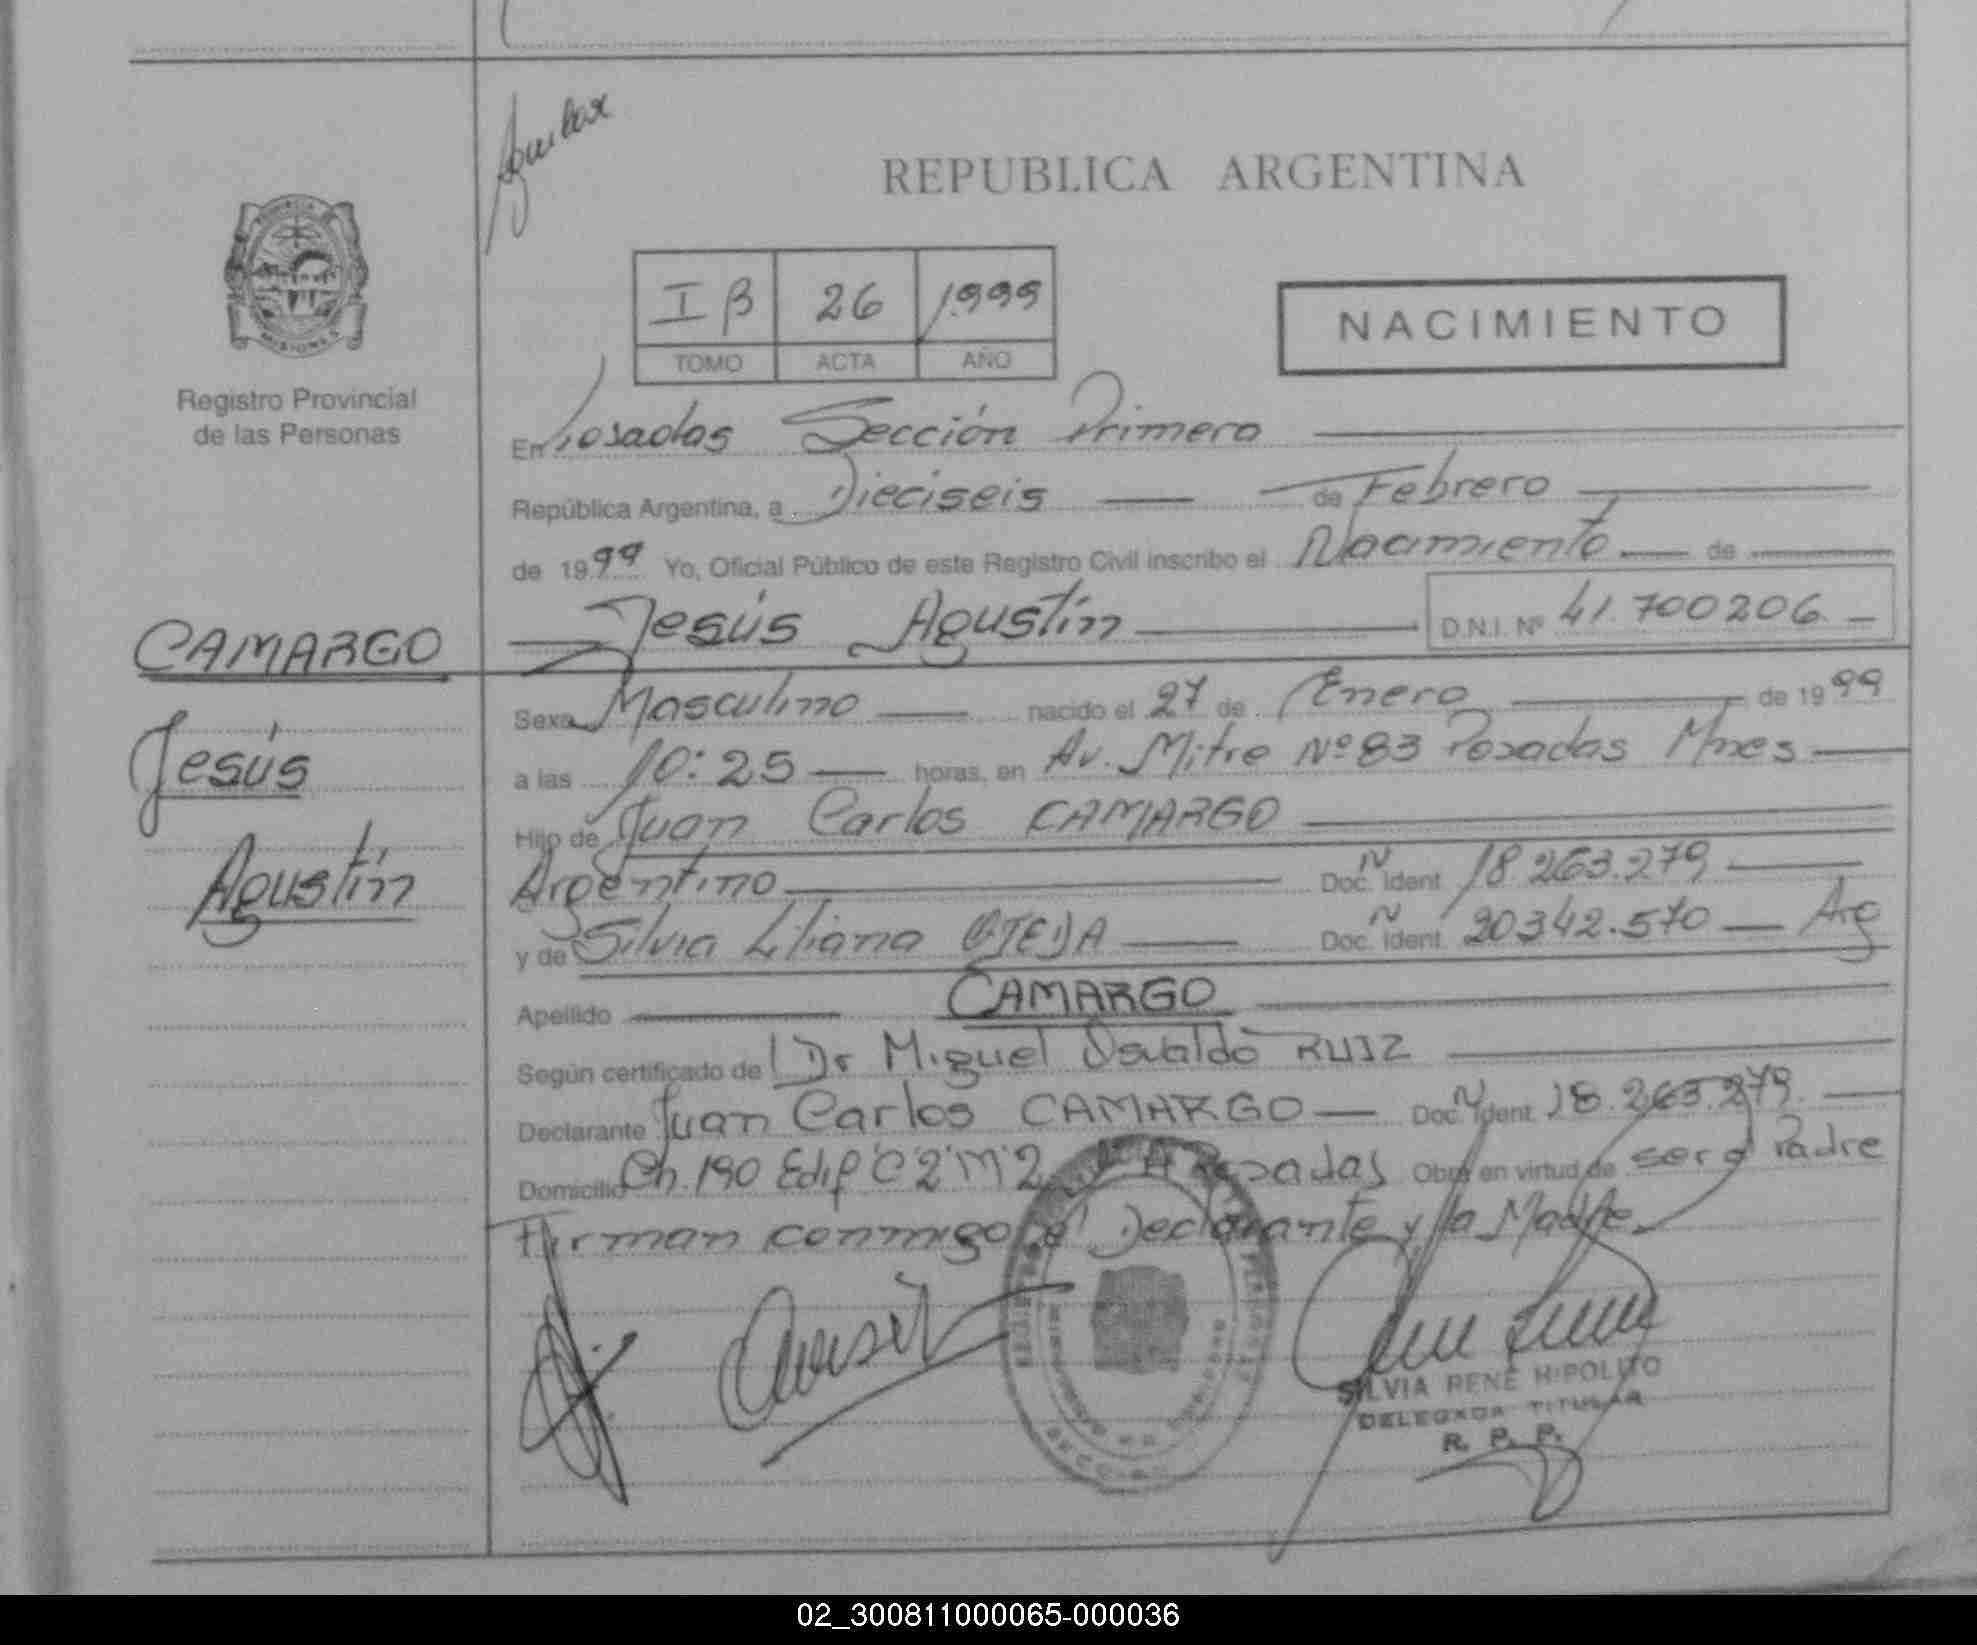 Aguilar
REPUBLICA ARGENTINA
I B 26 1.999
TOMO ACTA AÑO
NACIMIENTO
PROVINCIA
MISIONES
Registro Provincial
de las Personas
En Posadas Sección Primera
República Argentina, a Dieciseis de Febrero
de 1999 Yo, Oficial Público de este Registro Civil inscribo el Nacimiento de
Jesús Agustín D.N.I. Nº 41.700206.
CAMARGO
Jesús
Agustín
Sexo Masculino nacido el 27 de Enero de 1999
a las 10:25 horas, en Av. Mitre Nº 83 Posadas Mnes
Hijo de Juan Carlos CAMARGO
Argentino Doc. Ident. 18.263.279
y de Silvia Liliana OJEDA Doc. Ident. 20342.570 Arg
Apellido CAMARGO
Según certificado de Dr Miguel Osvaldo RUIZ
Declarante Juan Carlos CAMARGO Doc. Ident. 18.263.279.
Domicilio Ch. 190 Edif "C2" M"2 Posadas Obra en virtud de ser el Padre
Firman conmigo el Declarante y la Madre.
SILVIA RENÉ HIPOLITO
DELEGADA TITULAR
R. P. P.
02_300811000065-000036